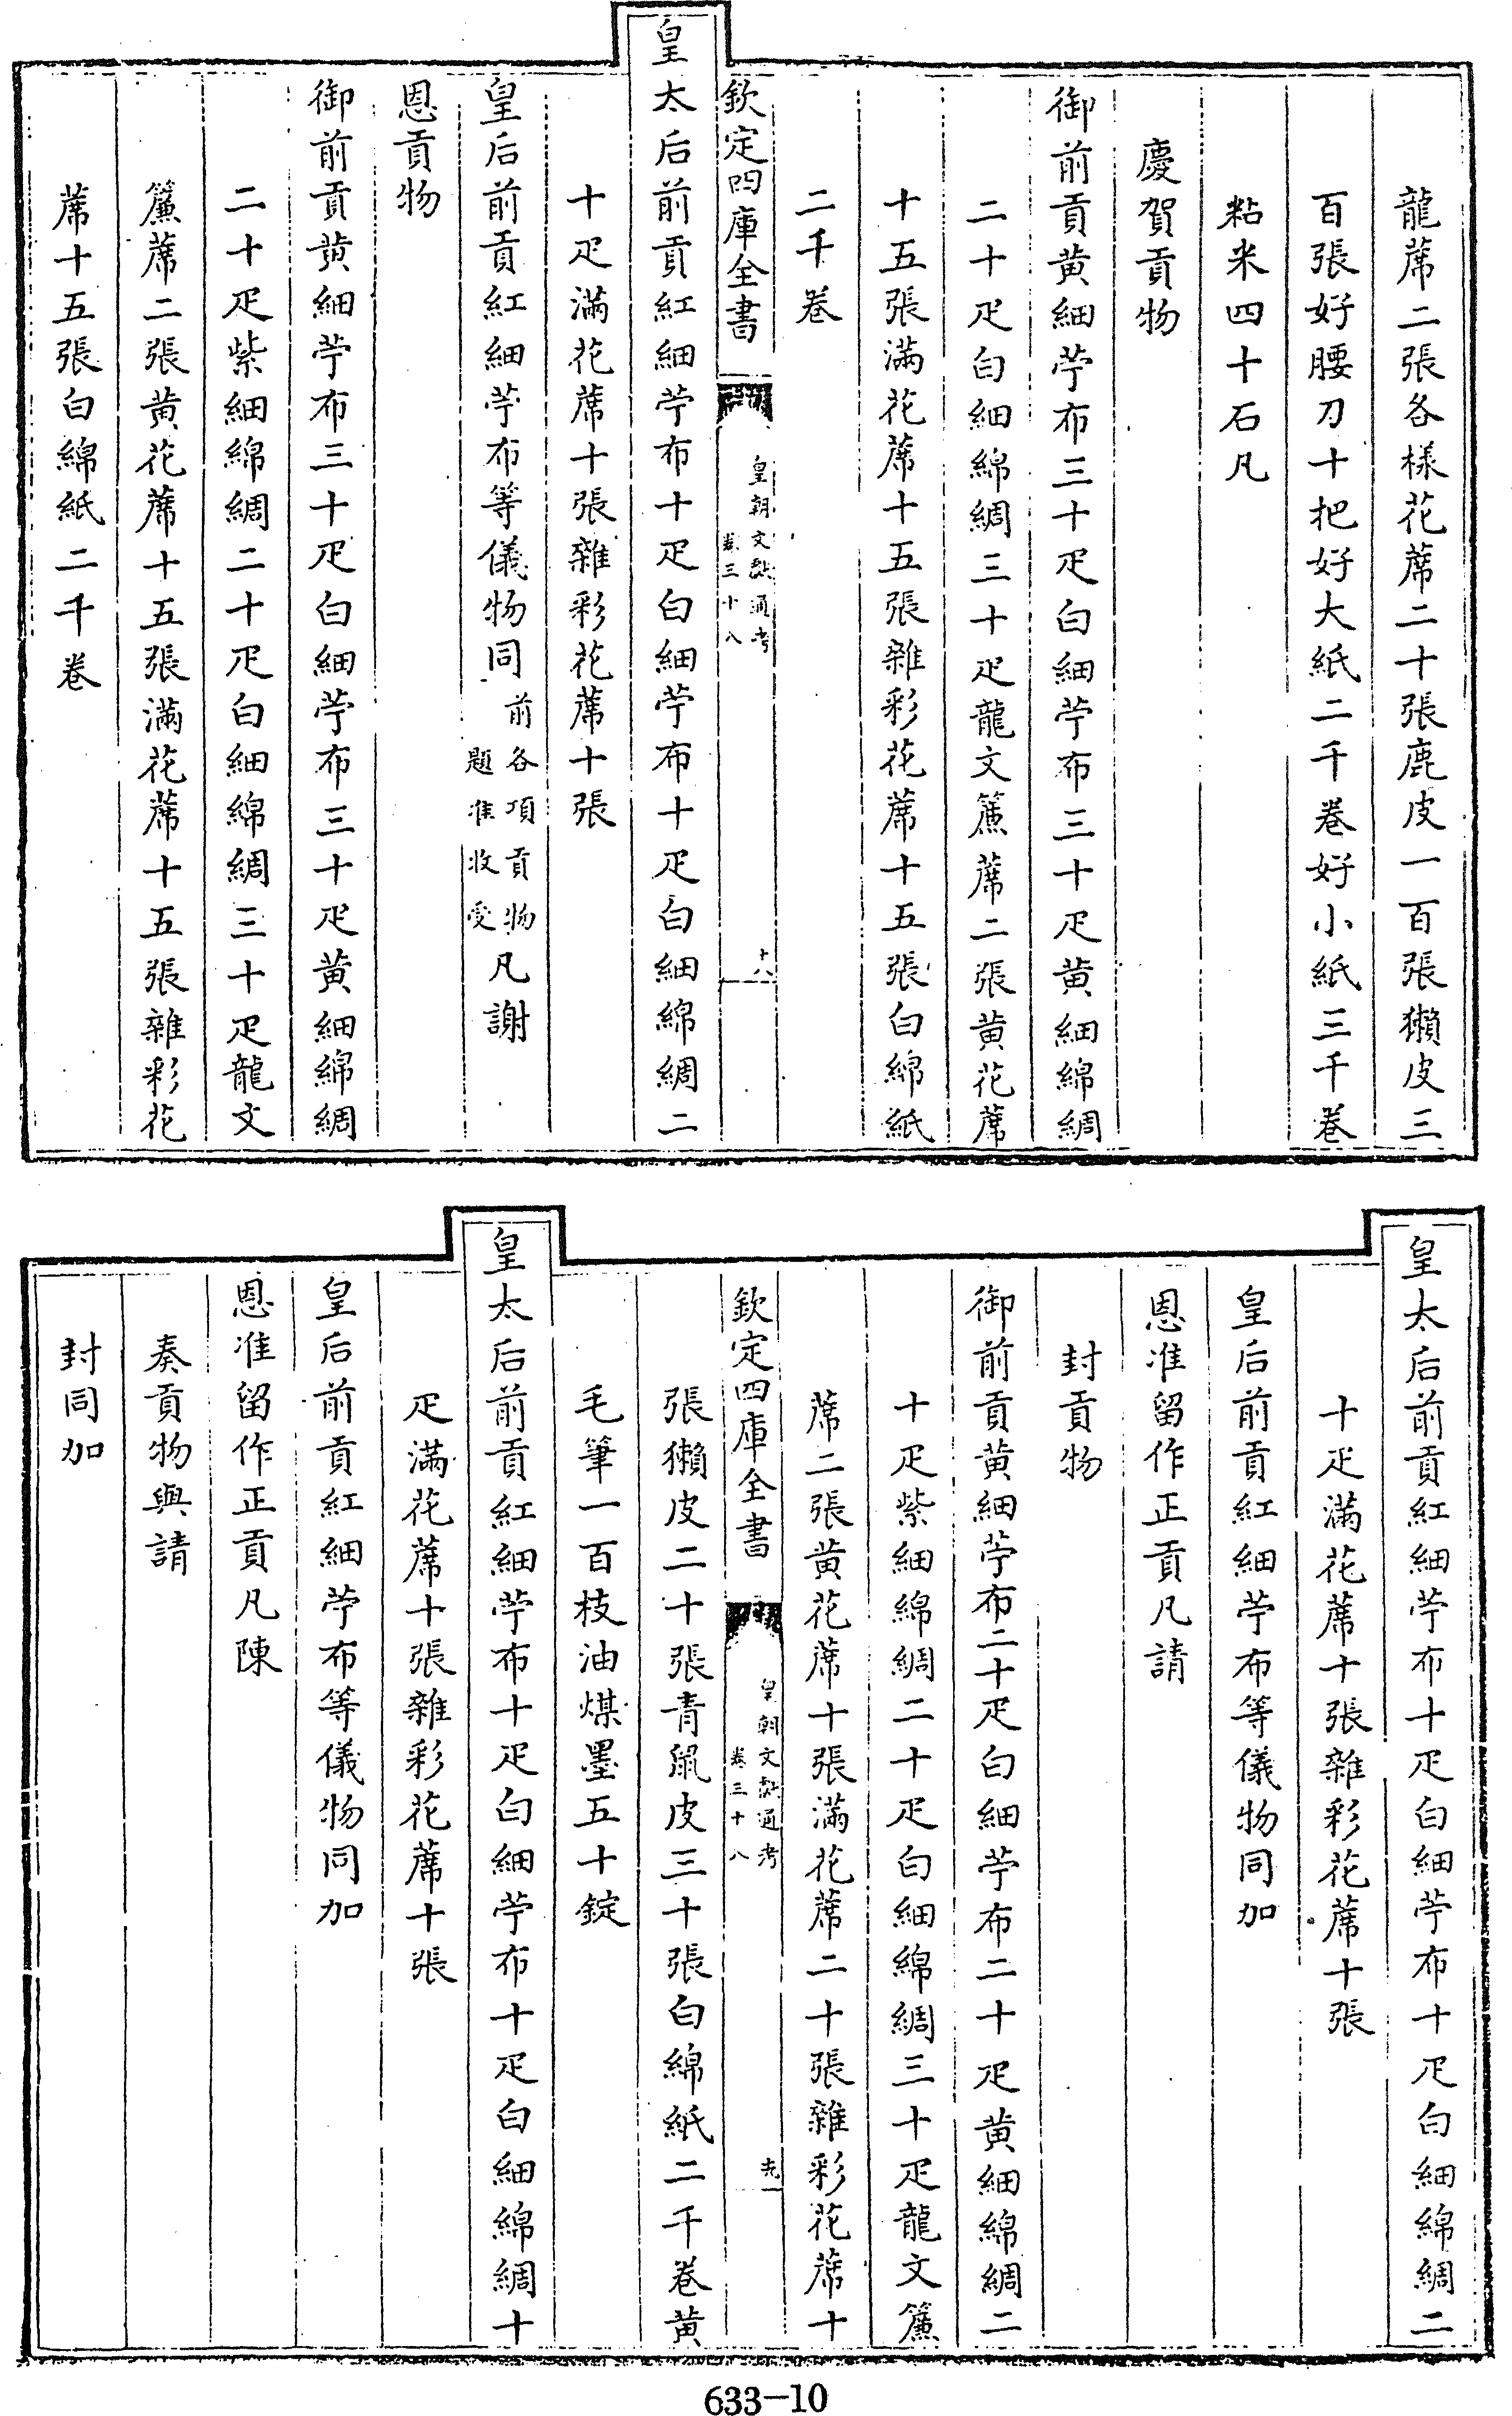 龍蓆二張各様花蓆二十張鹿皮一百張獺皮三
百張好腰刀十把好大紙二千卷好小紙三千卷
粘米四十石凡
慶賀貢物
御前貢黄細苧布三十疋白細苧布三十疋黄細綿綢
二十疋白細綿綢三十疋龍文簾蓆二張黄花蓆
十五張滿花蓆十五張雜彩花蓆十五張白綿紙
二千卷
欽定四庫全書
皇朝文獻通考
卷三十八
十八
皇太后前貢紅細苧布十疋白細苧布十疋白細綿綢二
十疋滿花蓆十張雜彩花蓆十張
皇后前貢紅細苧布等儀物同前各項貢物題准收受凡謝
恩貢物
御前貢黄細苧布三十疋白細苧布三十疋黄細綿綢
二十疋紫細綿綢二十疋白細綿綢三十疋龍文
簾蓆二張黄花蓆十五張滿花蓆十五張雜彩花
蓆十五張白綿紙二千卷
皇太后前貢紅細苧布十疋白細苧布十疋白細綿綢二
十疋滿花蓆十張雜彩花蓆十張
皇后前貢紅細苧布等儀物同加
恩准留作正貢凡請
封貢物
御前貢黄細苧布二十疋白細苧布二十疋黄細綿綢二
十疋紫細綿綢二十疋白細綿綢三十疋龍文簾
蓆二張黄花蓆十張滿花蓆二十張雜彩花蓆十
欽定四庫全書
皇朝文獻通考
卷三十八
十九
張獺皮二十張青鼠皮三十張白綿紙二千卷黄
毛筆一百枝油煤墨五十錠
皇太后前貢紅細苧布十疋白細苧布十疋白細綿綢十
疋滿花蓆十張雜彩花蓆十張
皇后前貢紅細苧布等儀物同加
恩准留作正貢凡陳
奏貢物與請
封同加
633-10